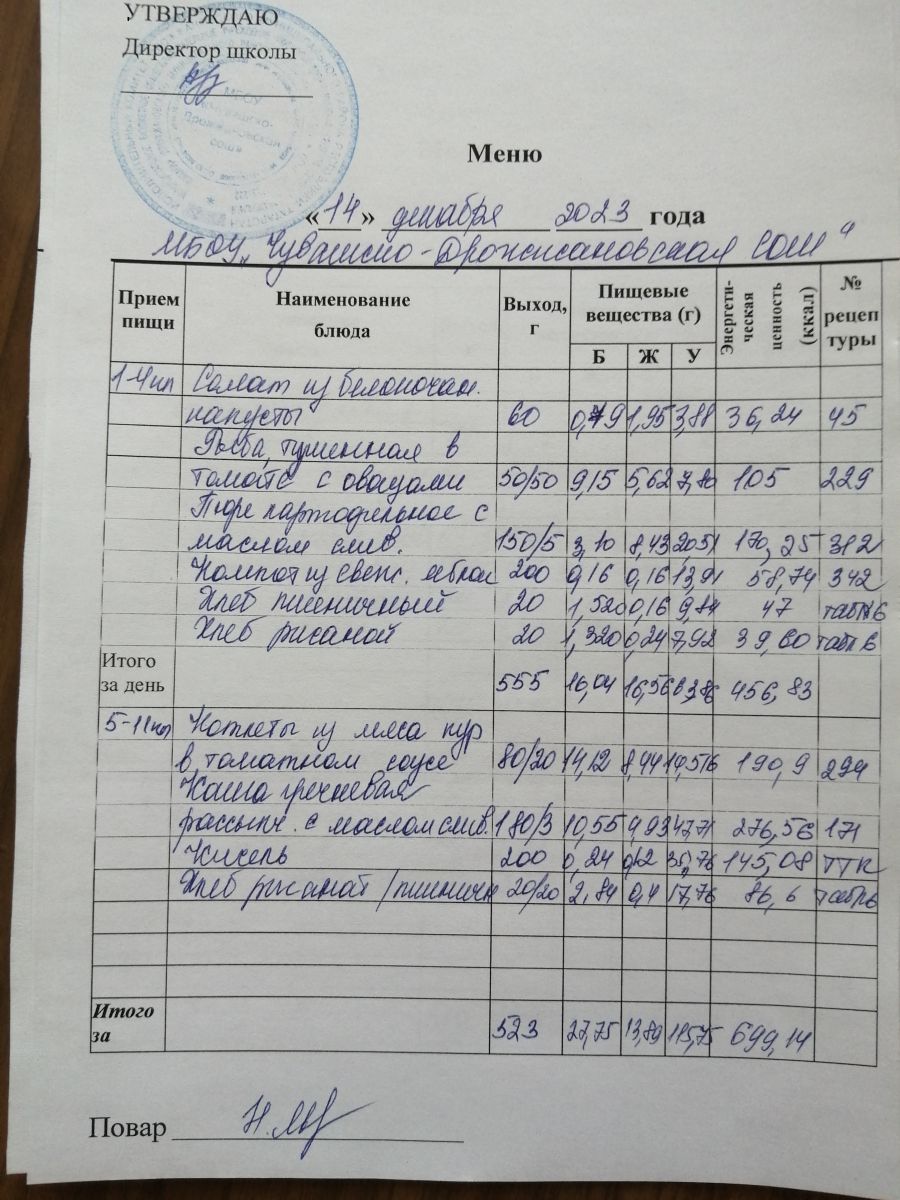 УТВЕРЖДАЮ
Директор школы
МБОУ
Дрожжановская
сош»
Меню
«14» декабря 2023 года
МБОУ „Чувашско-Дрожжановская СОШ“
Прием пищи Наименование блюда Выход, г Пищевые вещества (г) Б Ж У Энергетическая ценность (ккал) № рецептуры
1-4 кл Салат из белокочан.
капусты 60 0,79 1,95 3,88 36,24 45
Рыба, тушенная в
томате с овощами 50/50 9,15 5,62 7,80 105 229
Пюре картофельное с
маслом слив. 150/5 3,10 8,43 20,51 170,25 312
Компот из свеж. яблок 200 0,16 0,16 13,91 58,74 342
Хлеб пшеничный 20 1,520 0,16 9,84 47 табл 6
Хлеб ржаной 20 1,320 0,24 7,92 39,60 табл 6
Итого
за день 555 16,04 16,56 63,86 456,83
5-11 кл Котлеты из мяса кур
в томатном соусе 80/20 14,12 8,44 14,516 190,9 294
Каша гречневая
рассыпч. с маслом слив. 180/3 10,55 4,93 47,71 276,56 171
Кисель 200 0,24 0,12 35,76 145,08 ТТК
Хлеб ржаной/пшеничн 20/20 2,84 0,4 17,76 86,6 табл 6
Итого
за 523 27,75 13,89 115,75 699,14
Повар